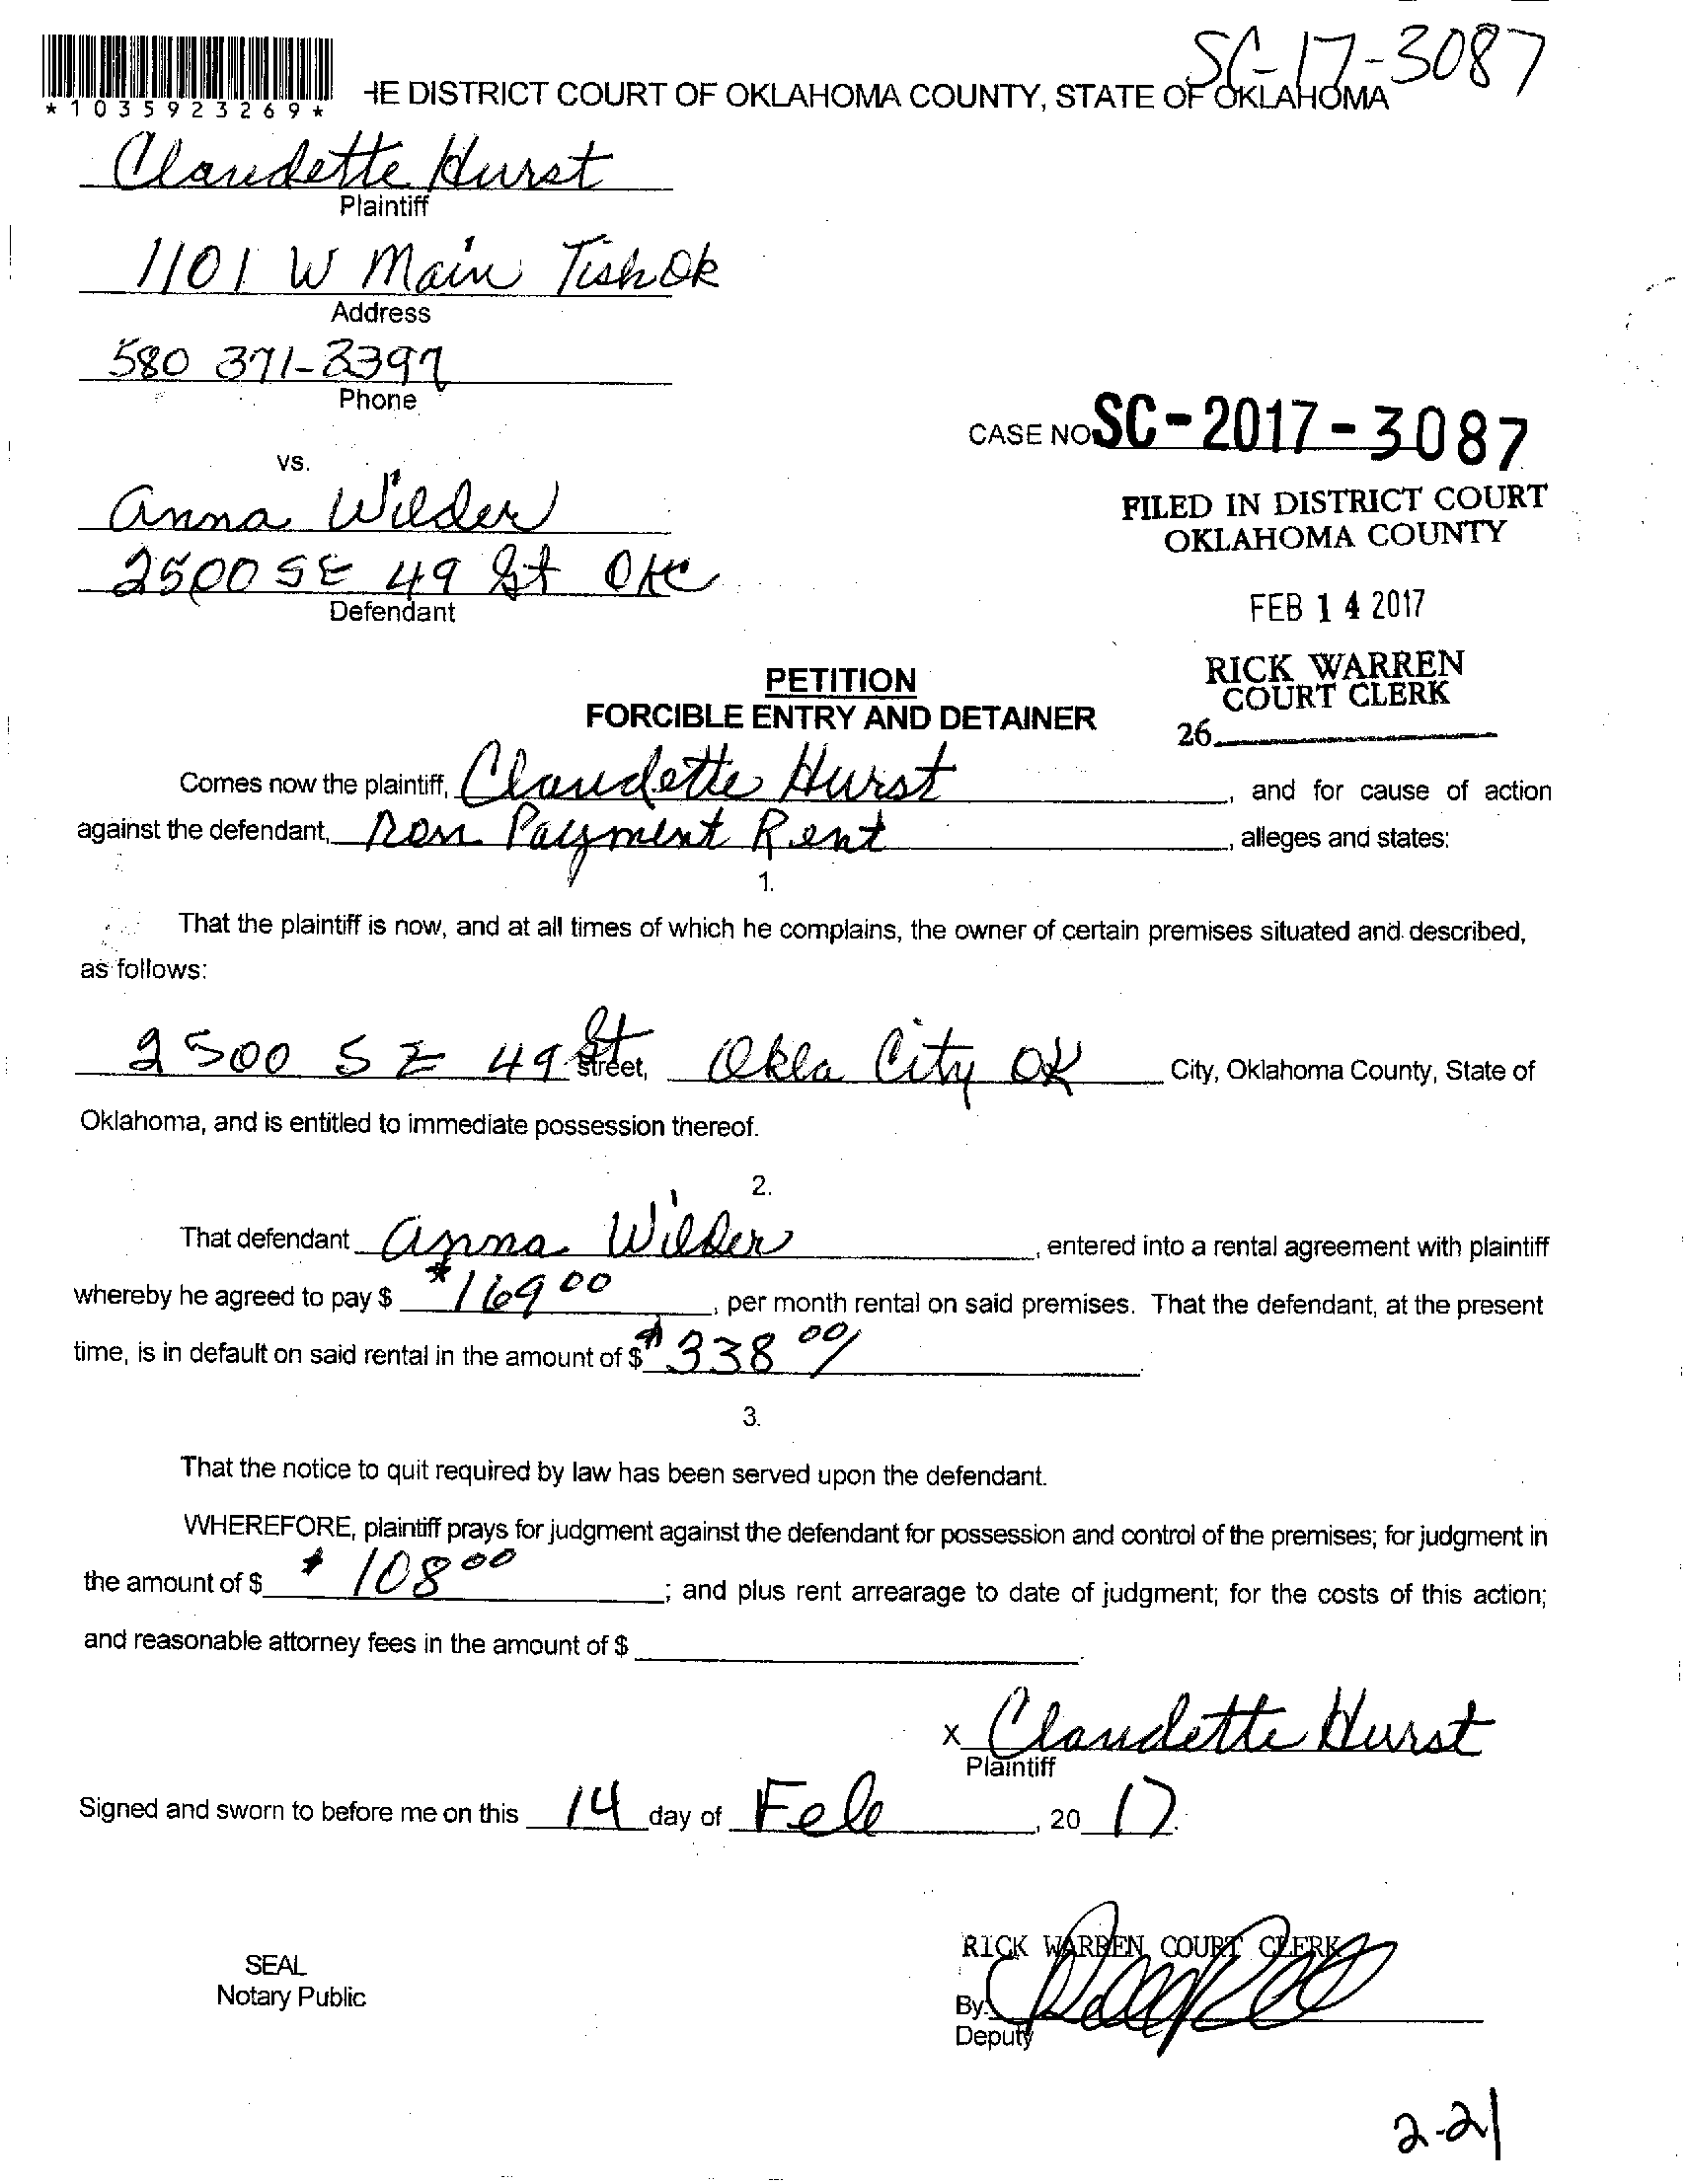 SC-17-3087
*1035923269*
HE DISTRICT COURT OF OKLAHOMA COUNTY, STATE OF OKLAHOMA
Claudette Hurst
Plaintiff
1101 W Main Tish Ok
Address
580 371-2397
Phone
CASE NO SC-2017-3087
vs.
Anna Wilder
2500 SE 49 St OKC
Defendant
FILED IN DISTRICT COURT
OKLAHOMA COUNTY
FEB 14 2017
RICK WARREN
COURT CLERK
26
PETITION
FORCIBLE ENTRY AND DETAINER
Comes now the plaintiff, Claudette Hurst, and for cause of action
against the defendant, Non Payment Rent, alleges and states:
1.
That the plaintiff is now, and at all times of which he complains, the owner of certain premises situated and described,
as follows:
2500 SE 49 St Street, Okla City OK City, Oklahoma County, State of
Oklahoma, and is entitled to immediate possession thereof.
2.
That defendant Anna Wilder, entered into a rental agreement with plaintiff
whereby he agreed to pay $ $169 00, per month rental on said premises. That the defendant, at the present
time, is in default on said rental in the amount of $ $338 00/.
3.
That the notice to quit required by law has been served upon the defendant.
WHEREFORE, plaintiff prays for judgment against the defendant for possession and control of the premises; for judgment in
the amount of $ $108 00; and plus rent arrearage to date of judgment; for the costs of this action;
and reasonable attorney fees in the amount of $
x Claudette Hurst
Plaintiff
Signed and sworn to before me on this 14 day of Feb, 20 17.
SEAL
Notary Public
RICK WARREN, COURT CLERK
By:
Deputy
2-21